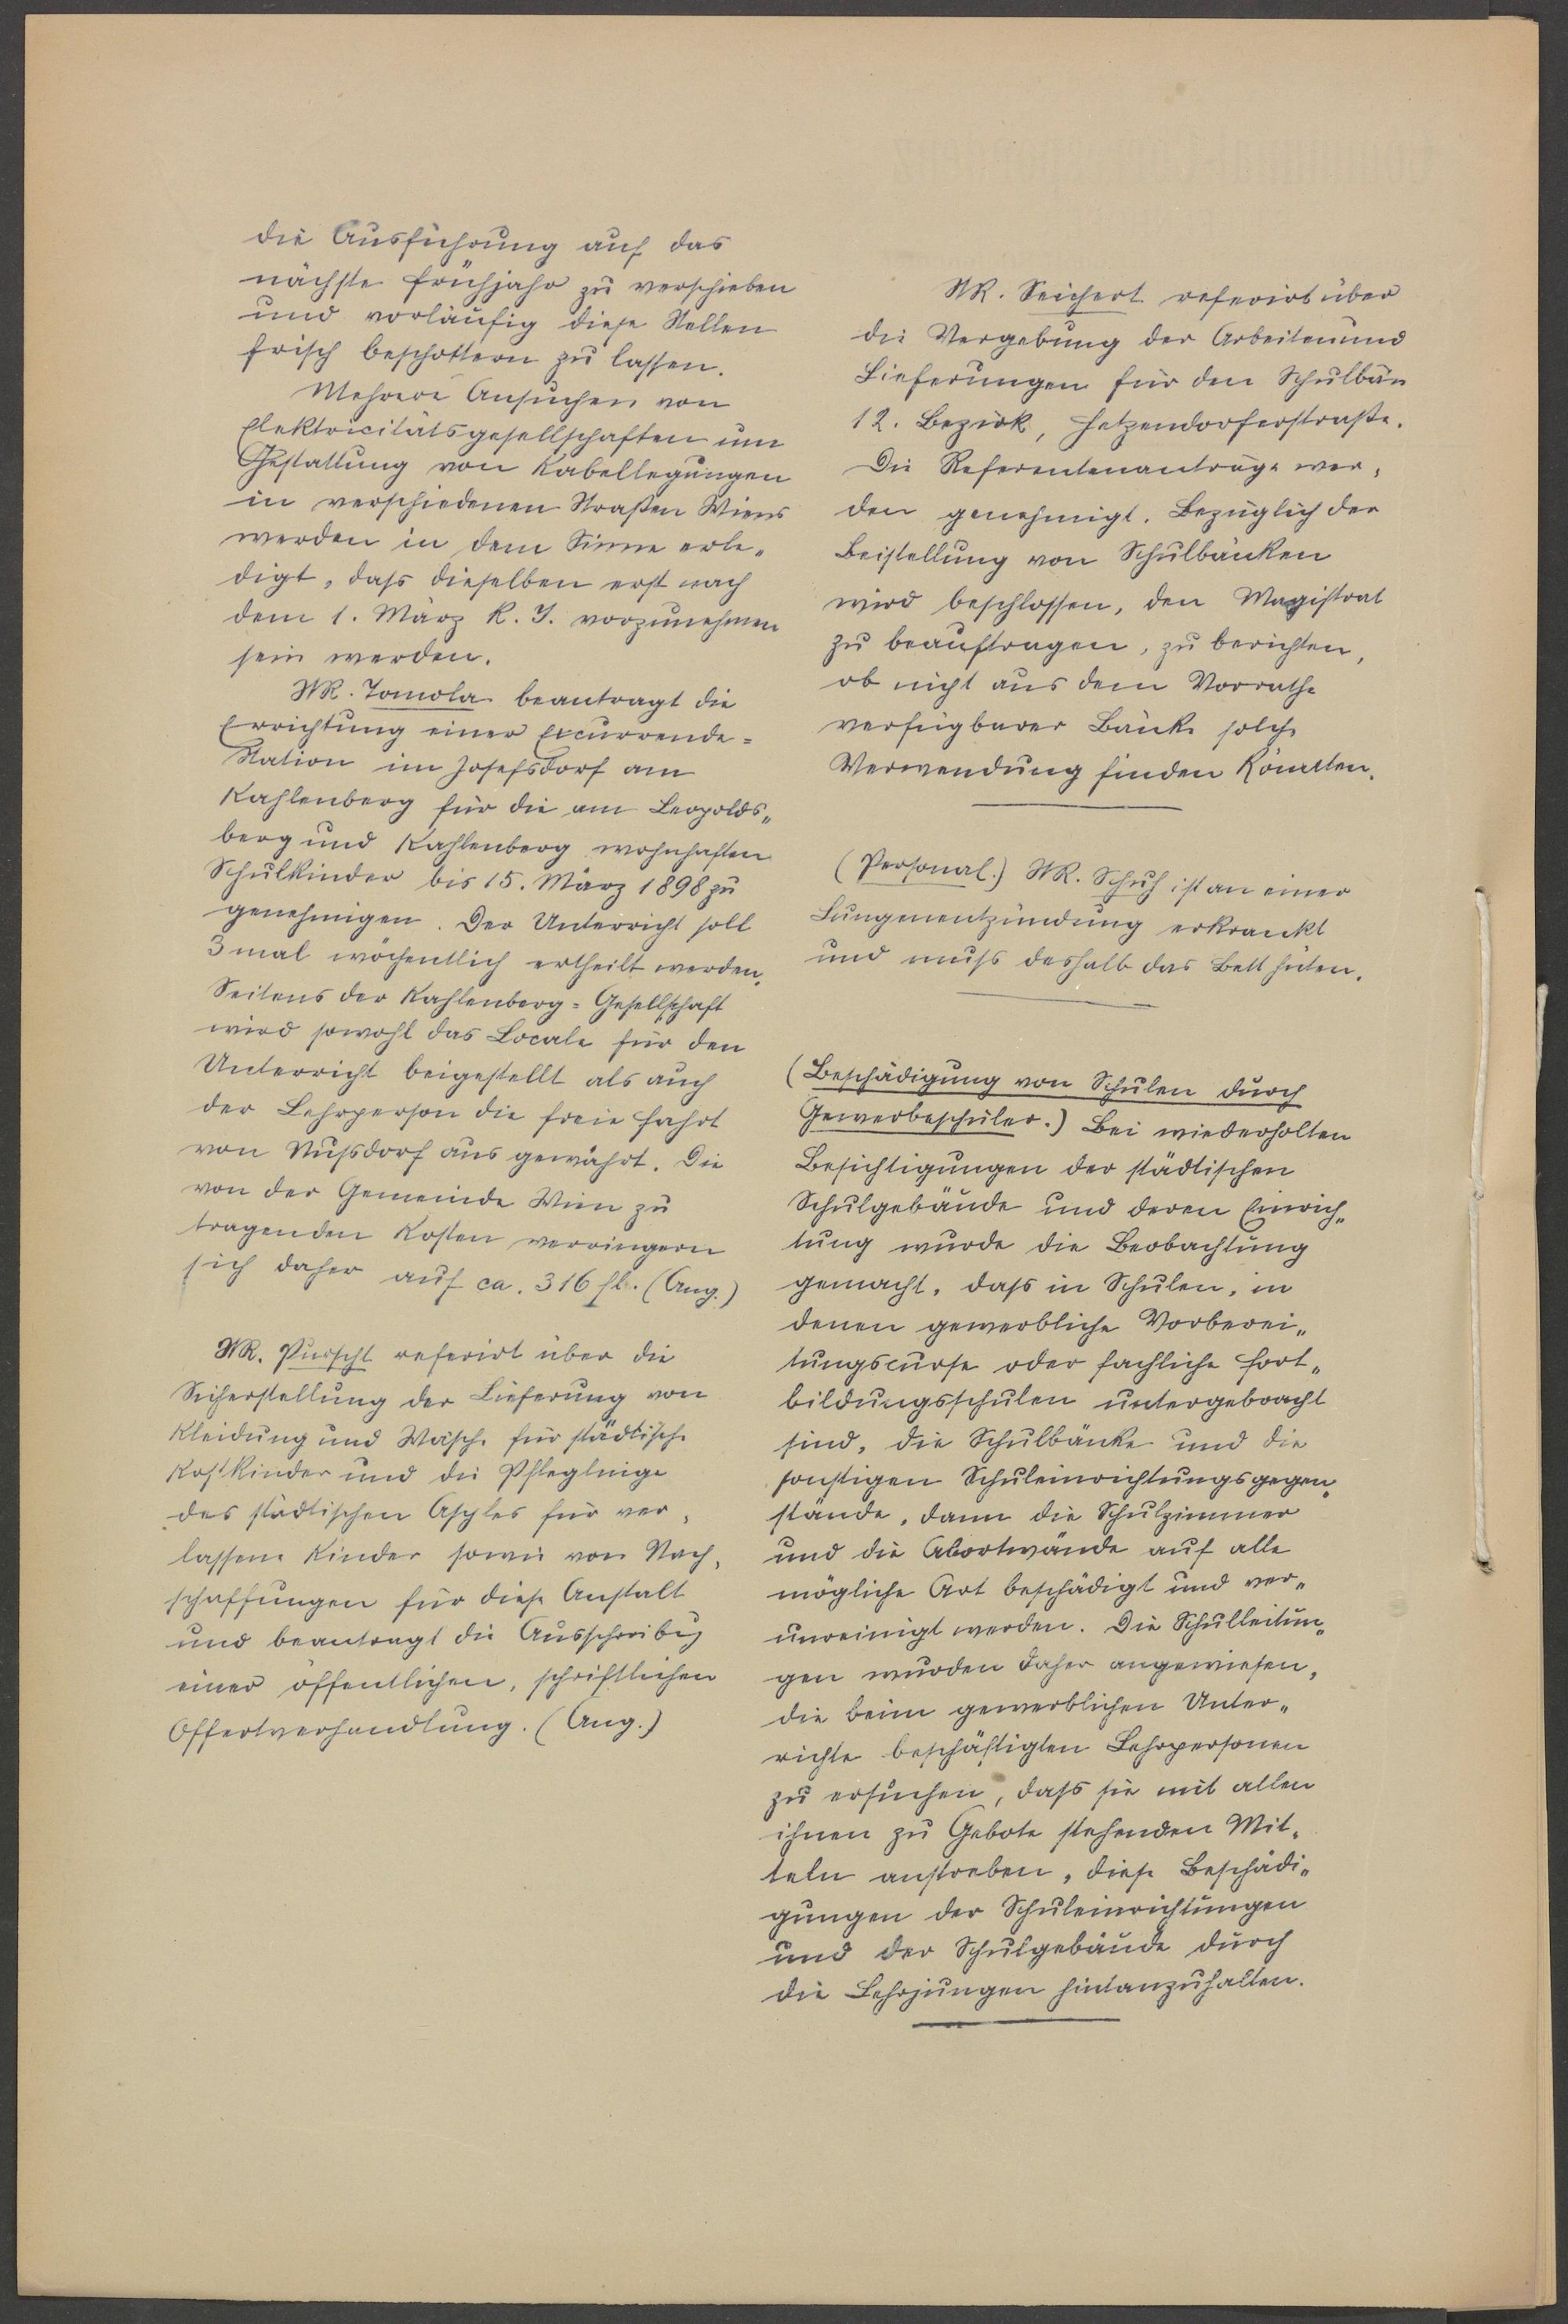 die Ausführung auf das
nächste Frühjahr zu verschieben
und vorläufig diese Stellen
frisch beschottern zu lassen.
Mehrere Ansuchen von
Elektricitätsgesellschaften um
Gestattung von Kabellegungen
in verschiedenen Straßen Wiens
werden in dem Sinne erle„
digt, dass dieselben erst nach
dem 1. März k. J. vorzunehmen
sein werden.
StR. Tomola beantragt die
Errichtung einer Excurrendo=
Station im Josefsdorf am
Kahlenberg für die am Leopolds„
berg und Kahlenberg wohnhaften
Schulkinder bis 15. März 1898 zu
genehmigen. Der Unterricht soll
3 mal wöchentlich ertheilt werden.
Seitens der Kahlenberg=Gesellschaft
wird sowohl das Locale für den
Unterricht beigestellt als auch
der Lehrperson die freie Fahrt
von Nußdorf aus gewährt. Die
von der Gemeinde Wien zu
tragenden Kosten verringern
sich daher auf ca. 316 fl. (Ang.)
StR. Purscht referirt über die
Sicherstellung der Lieferung von
Kleidung und Wäsche für städtische
Kostkinder und die Pfleglinge
des städtischen Asyles für ver„
lassene Kinder sowie von Nach„
schaffungen für diese Anstalt
und beantragt die Ausschreibg
einer öffentlichen, schriftlichen
Offertverhandlung. (Ang.)
StR. Seichert referirt über
die Vergebung der Arbeiten und
Lieferungen für den Schulbau
12. Bezirk, Hetzendorferstraße.
Die Referentenanträge wer„
den genehmigt. Bezüglich der
Beistellung von Schulbänken
wird beschlossen, den Magistrat
zu beauftragen, zu berichten,
ob nicht aus dem Vorrathe
verfügbarer Bänke solche
Verwendung finden könnten.
(Personal.) StR. Schuh ist an einer
Lungenentzündung erkrankt
und muss deshalb das Bett hüten.
(Beschädigung von Schulen durch
Gewerbeschüler.) Bei wiederholten
Besichtigungen der städtischen
Schulgebäude und deren Einrich„
tung wurde die Beobachtung
gemacht, dass in Schulen, in
denen gewerbliche Vorberei„
tungscurse oder fachliche Fort„
bildungsschulen untergebracht
sind, die Schulbänke und die
sonstigen Schuleinrichtungsgegen„
stände, dann die Schulzimmer
und die Abortwände auf alle
mögliche Art beschädigt und ver„
unreinigt werden. Die Schulleitun„
gen wurden daher angewiesen,
die beim gewerblichen Unter„
richte beschäftigten Lehrpersonen
zu ersuchen, dass sie mit allen
ihnen zu Gebote stehenden Mit„
teln anstreben, diese Beschädi„
gungen der Schuleinrichtungen
und der Schulgebäude durch
die Lehrjungen hintanzuhalten.